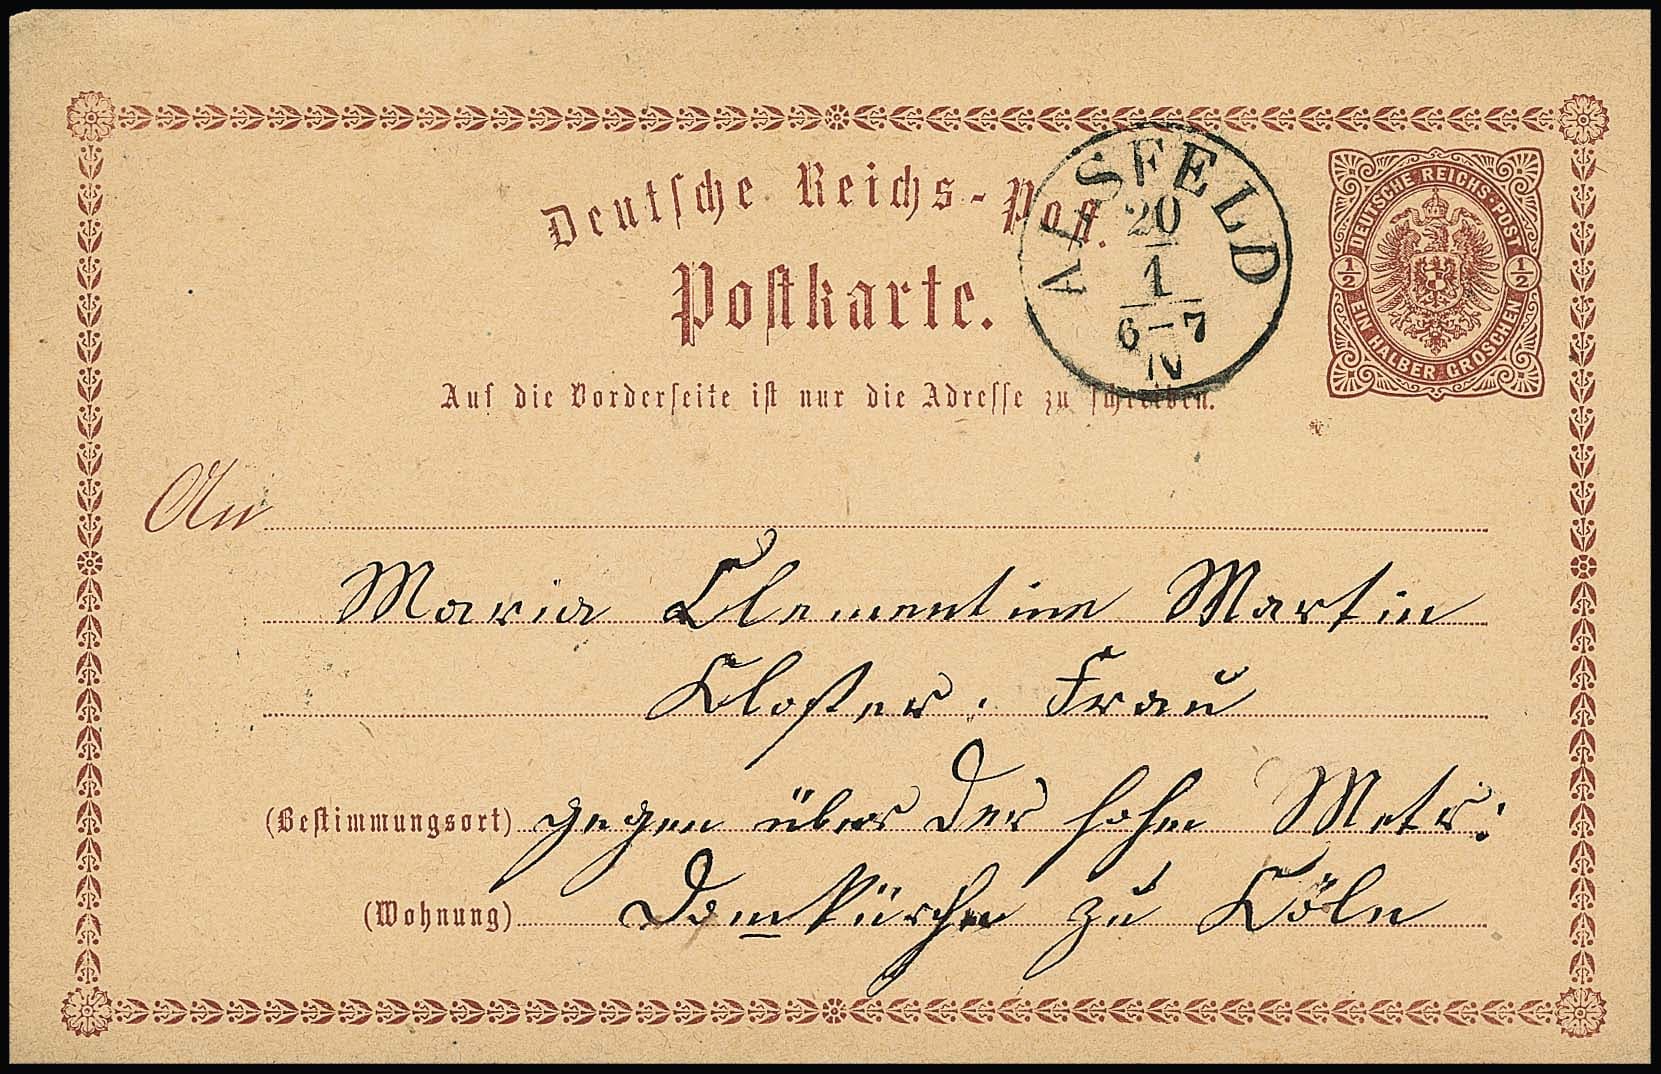 Deutsche Reichs-Post.
Postkarte.
ALSFELD
20
1
6-7
N
DEUTSCHE REICHS-POST
1/2
1/2
EIN HALBER GROSCHEN
Auf die Vorderseite ist nur die Adresse zu schreiben.
An
Maria Clementine Martin
Kloster. Frau
(Bestimmungsort) gegen über der hohen Metr:
(Wohnung) Domkürche zu Cöln